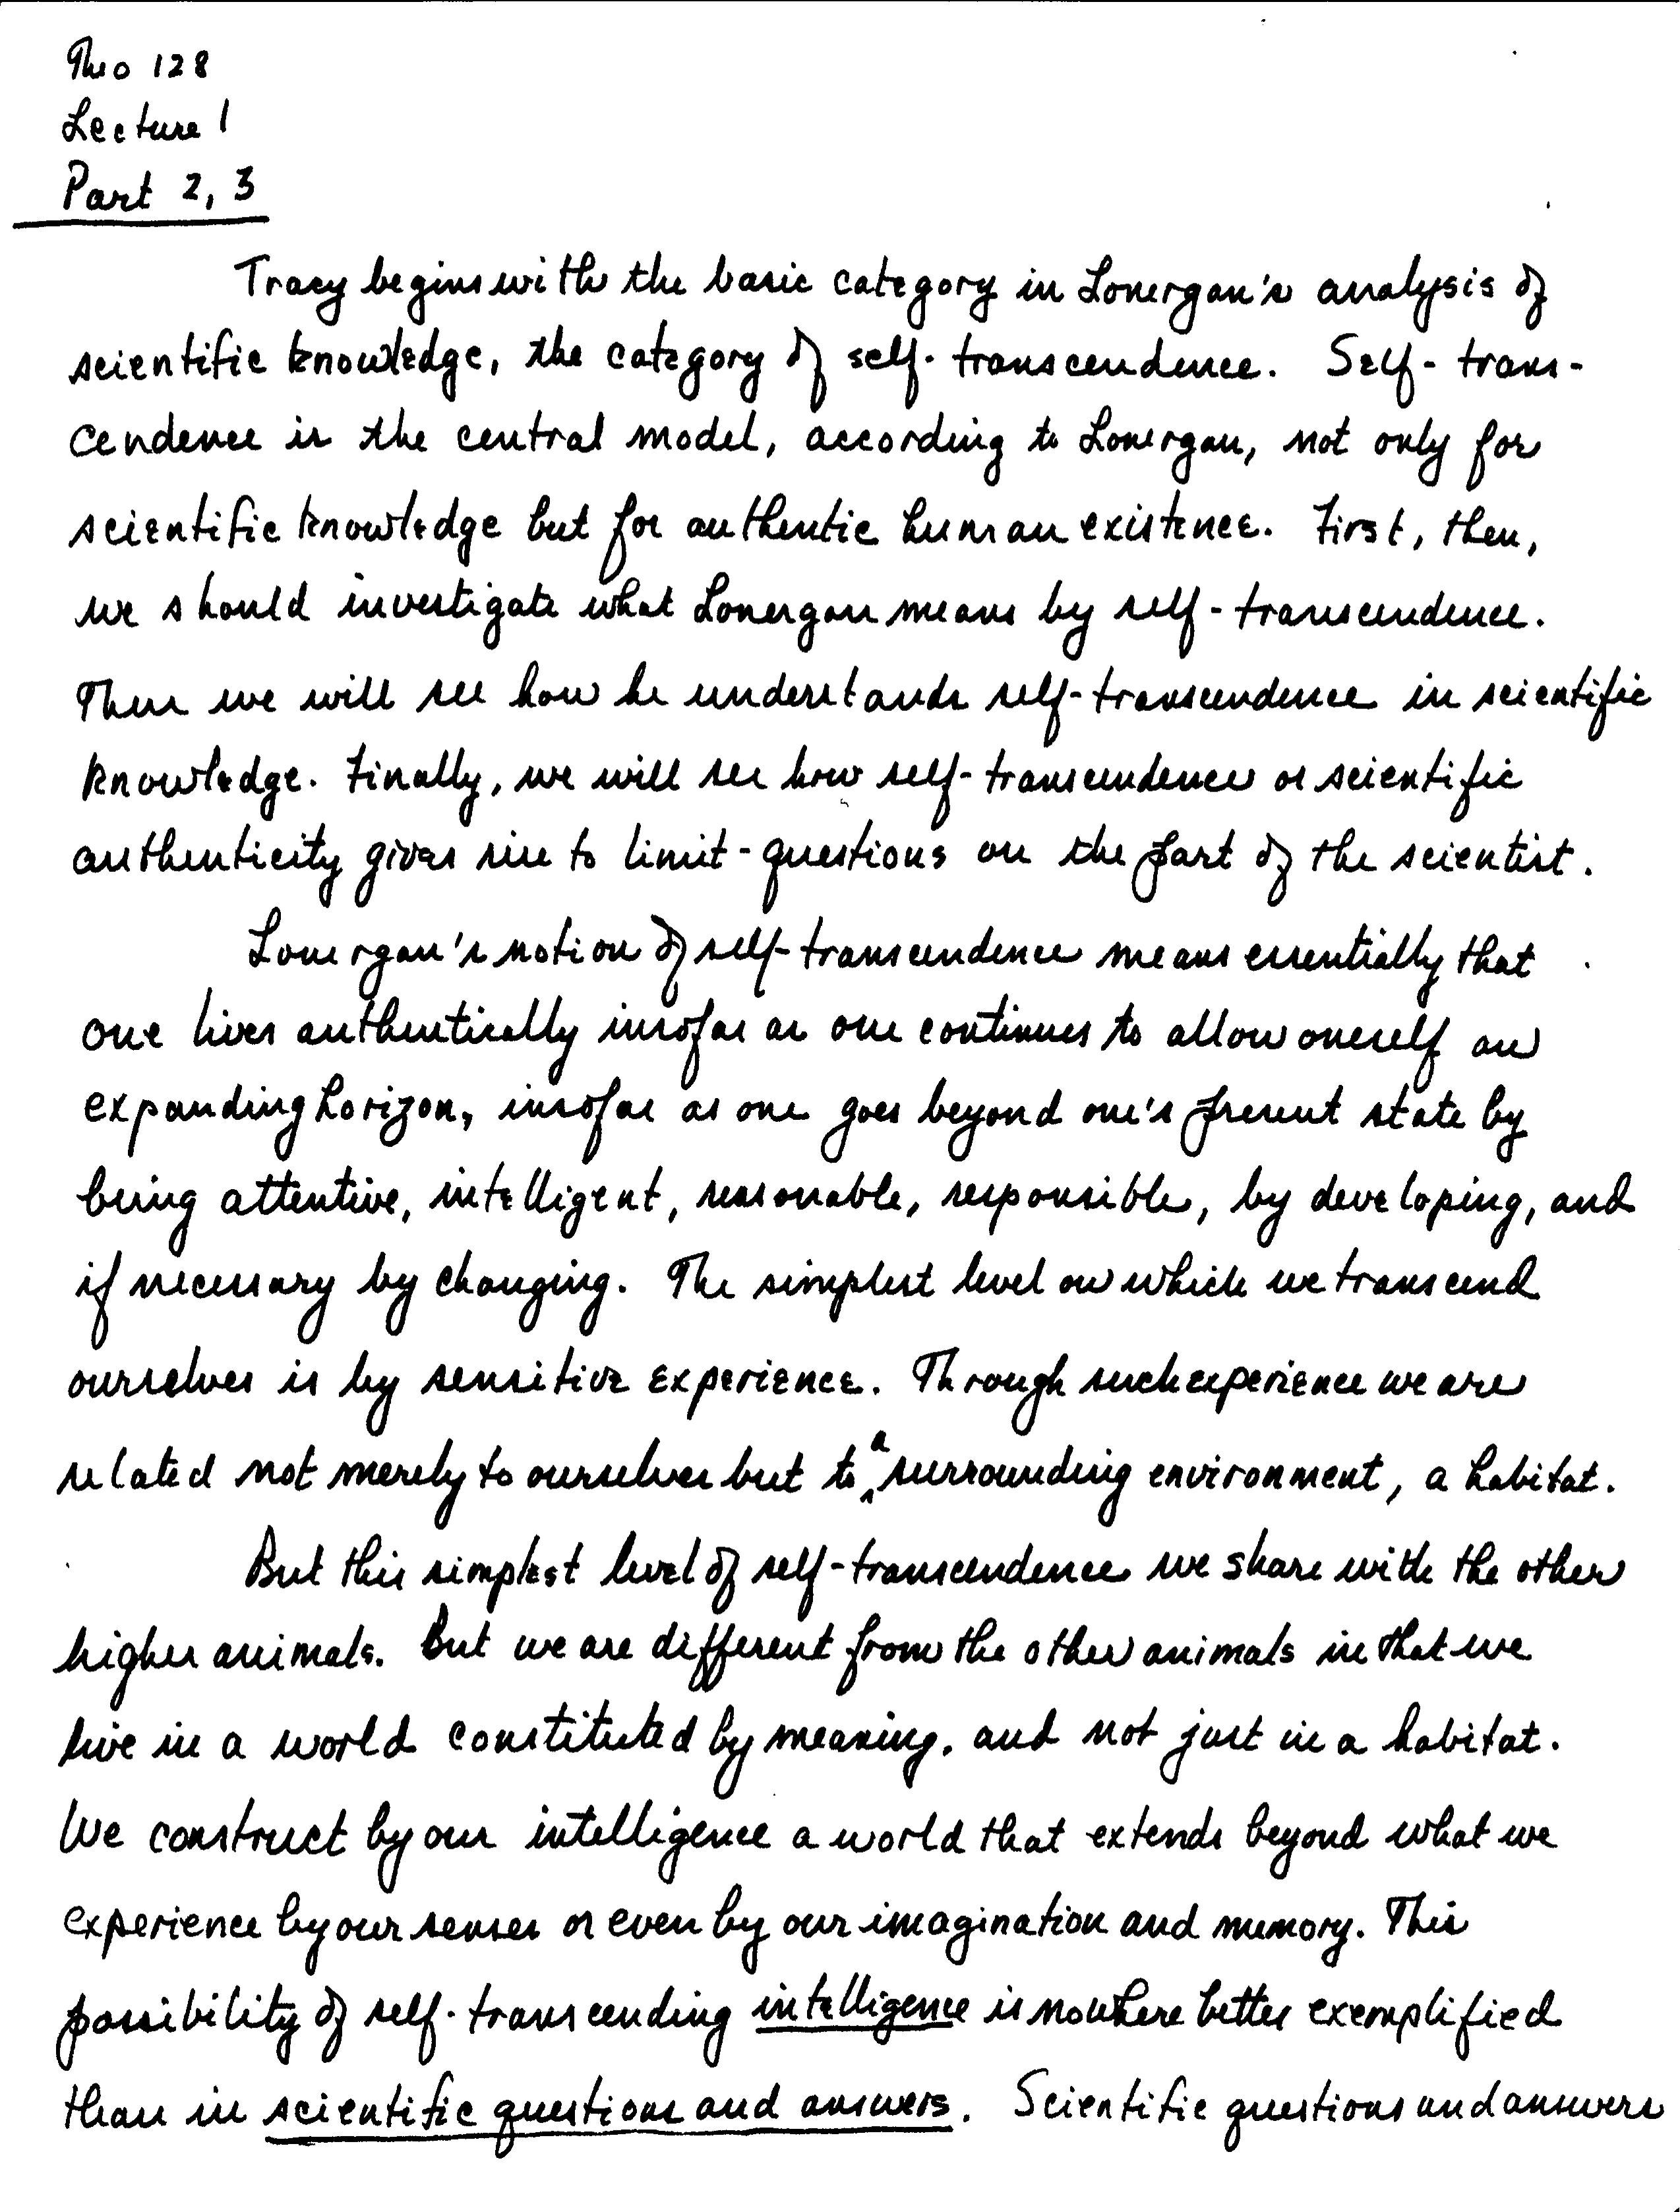 Theo 128
Lecture 1
Part 2, 3
Tracy begins with the basic category in Lonergan's analysis of
scientific knowledge, the category of self-transcendence. Self-trans-
cendence is the central model, according to Lonergan, not only for
scientific knowledge but for authentic human existence. First, then,
we should investigate what Lonergan means by self-transcendence.
Then we will see how he understands self-transcendence in scientific
knowledge. Finally, we will see how self-transcendence or scientific
authenticity gives rise to limit-questions on the part of the scientist.
Lonergan's notion of self-transcendence means essentially that
one lives authentically insofar as one continues to allow oneself an
expanding horizon, insofar as one goes beyond one's present state by
being attentive, intelligent, reasonable, responsible, by developing, and
if necessary by changing. The simplest level on which we transcend
ourselves is by sensitive experience. Through such experience we are
related not merely to ourselves but to a surrounding environment, a habitat.
But this simplest level of self-transcendence we share with the other
higher animals. But we are different from the other animals in that we
live in a world constituted by meaning, and not just in a habitat.
We construct by our intelligence a world that extends beyond what we
experience by our senses or even by our imagination and memory. This
possibility of self-transcending intelligence is nowhere better exemplified
than in scientific questions and answers. Scientific questions and answers